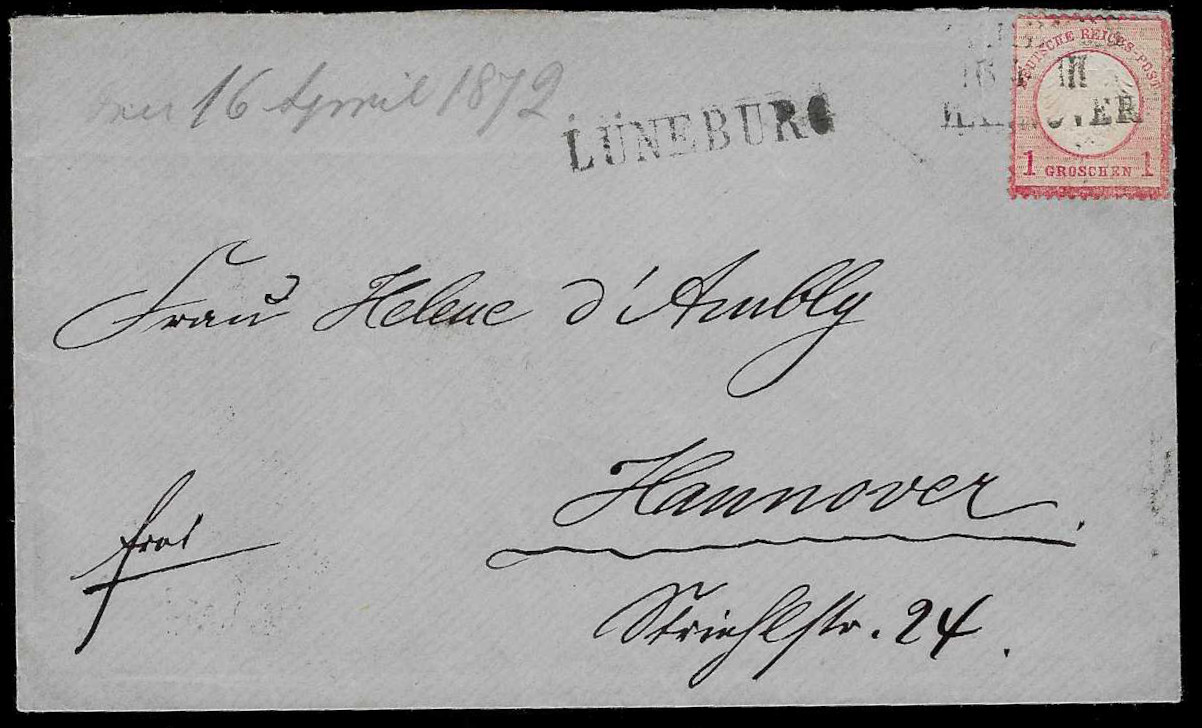 16 April 1872
LÜNEBURG
DEUTSCHE REICHS-POST
III
HANNOVER
1 GROSCHEN 1
Frau Helene d'Ambly
Hannover.
frei
24.